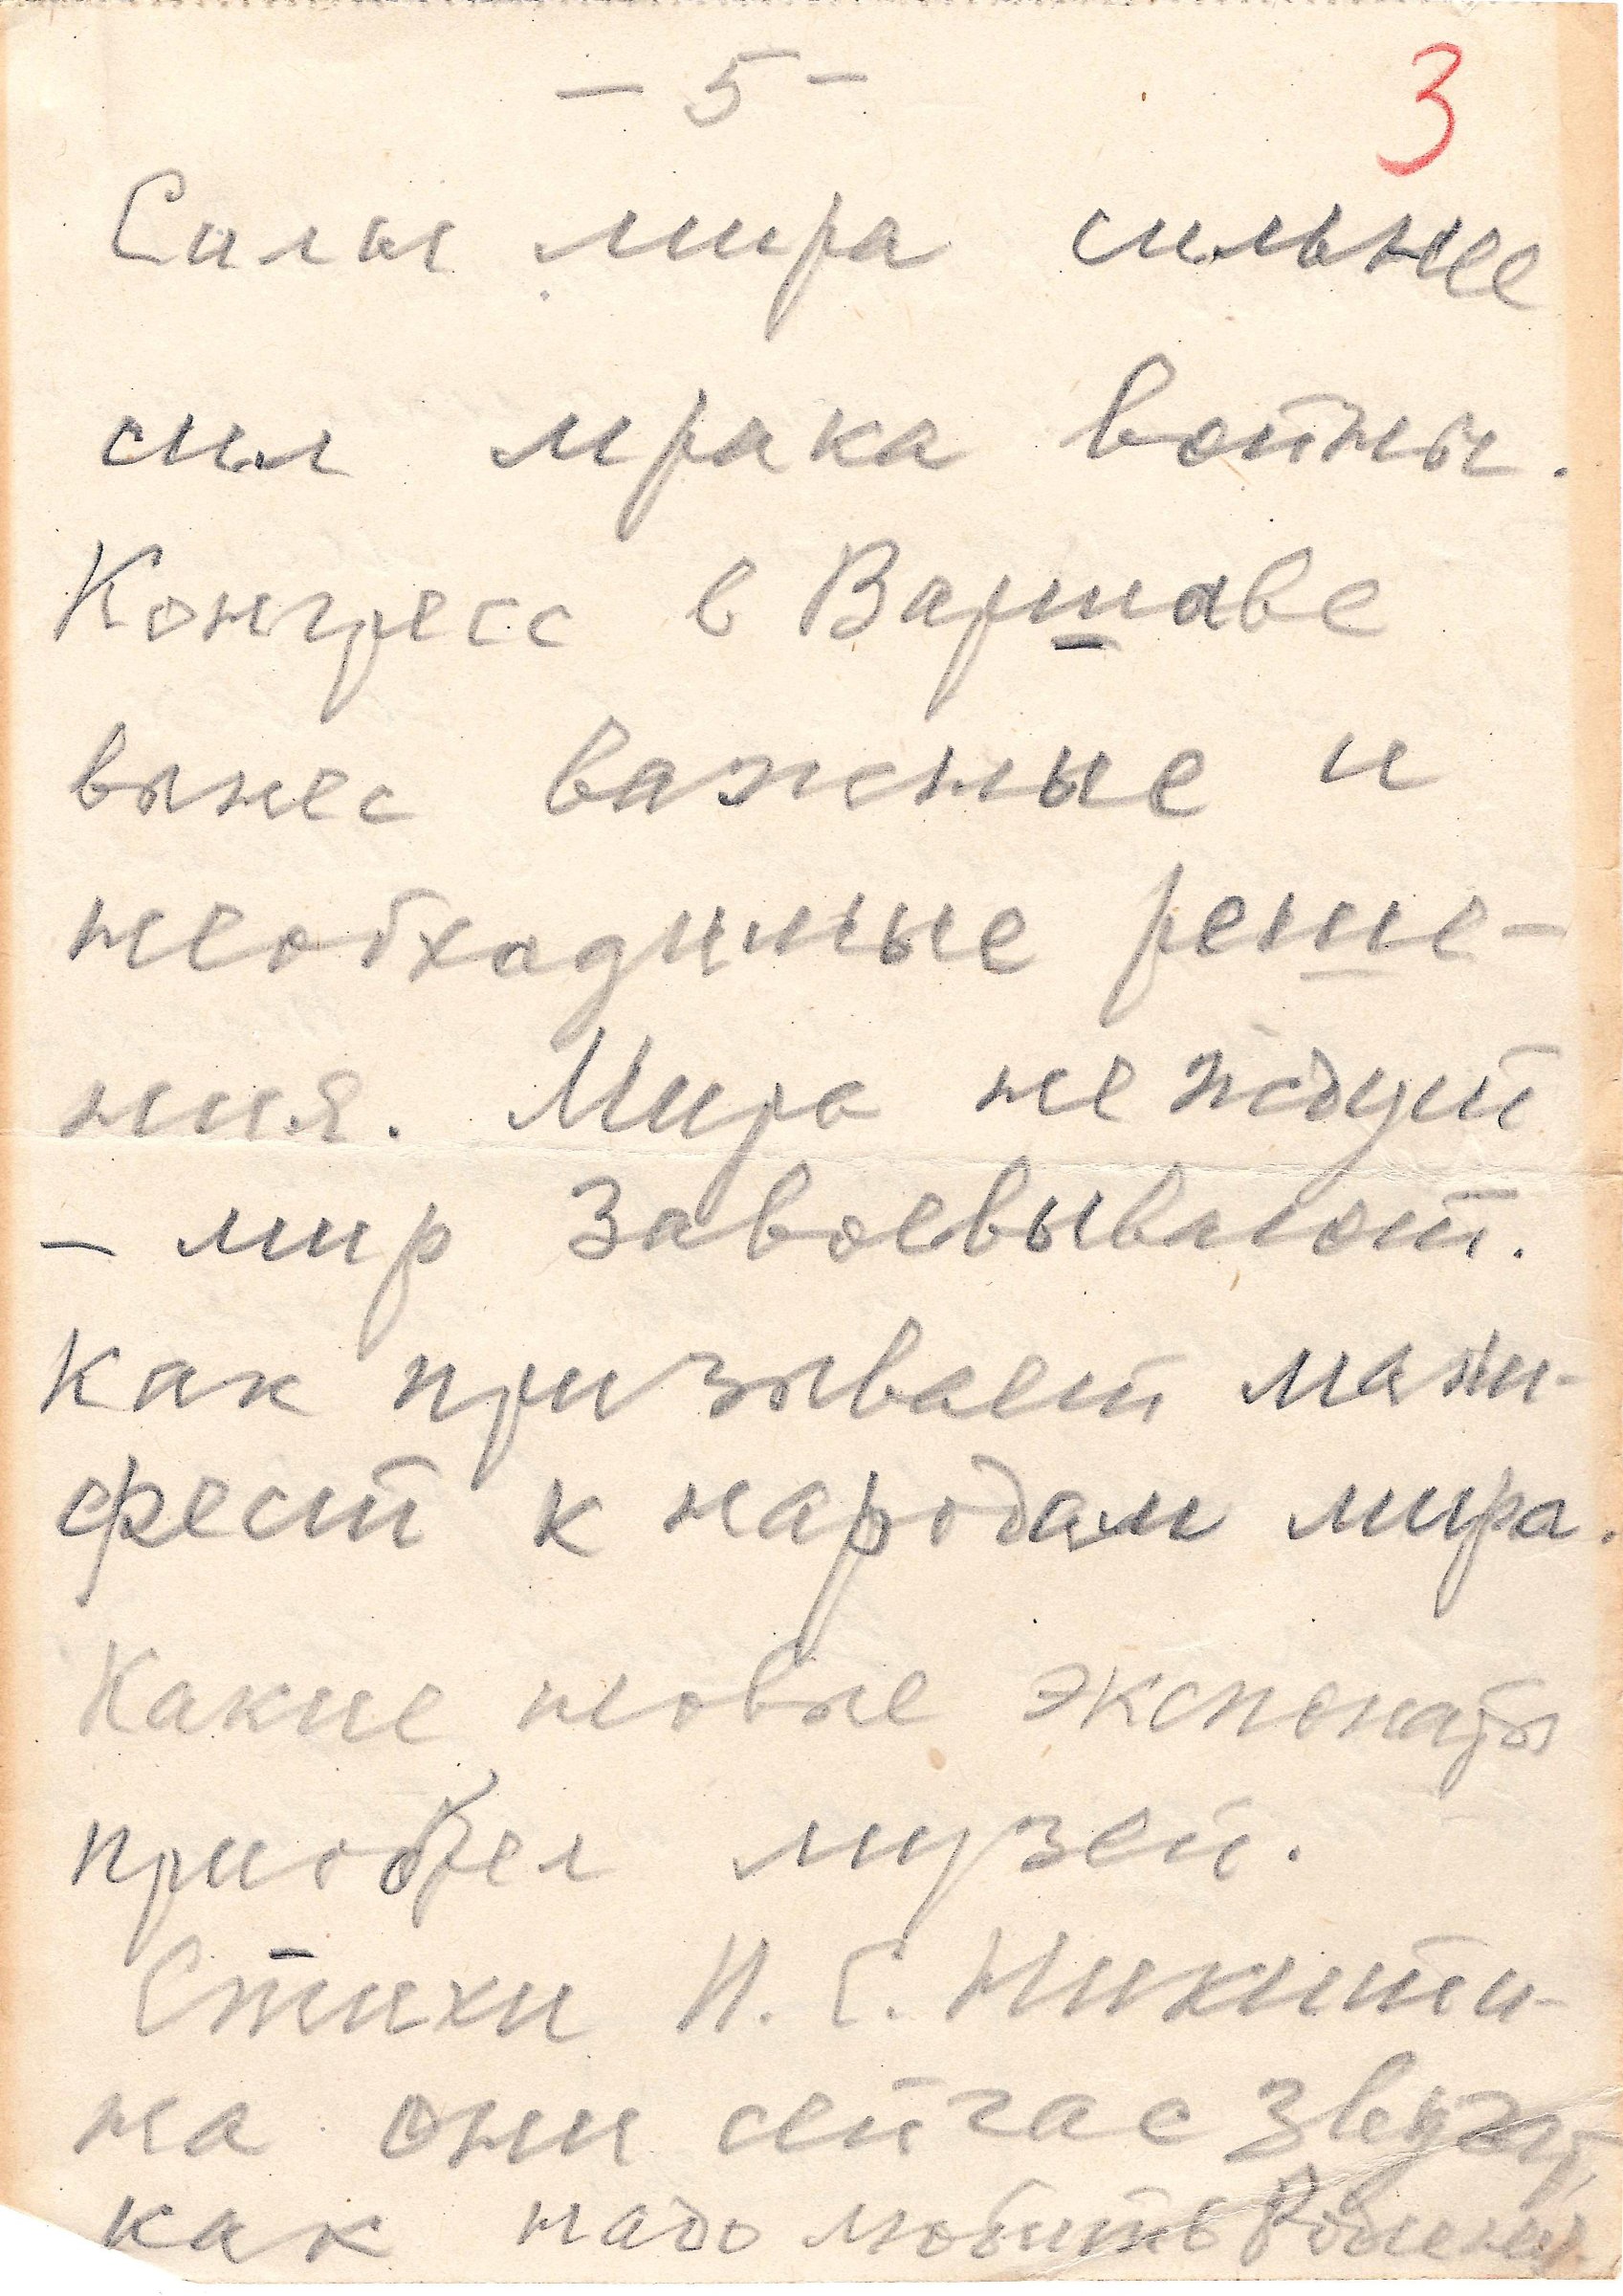 - 5 -
3
Силы мира сильнее
сил мрака войны.
Конгресс в Варшаве
вынес важные и
необходимые реше-
ния. Мира не ждут
- мир завоевывают.
как призывает мани-
фест к народам мира.
Какие новые экспонаты
приобрел музей.
Стихи И. С. Никити-
на они сейчас звучат,
как надо любить Родину.